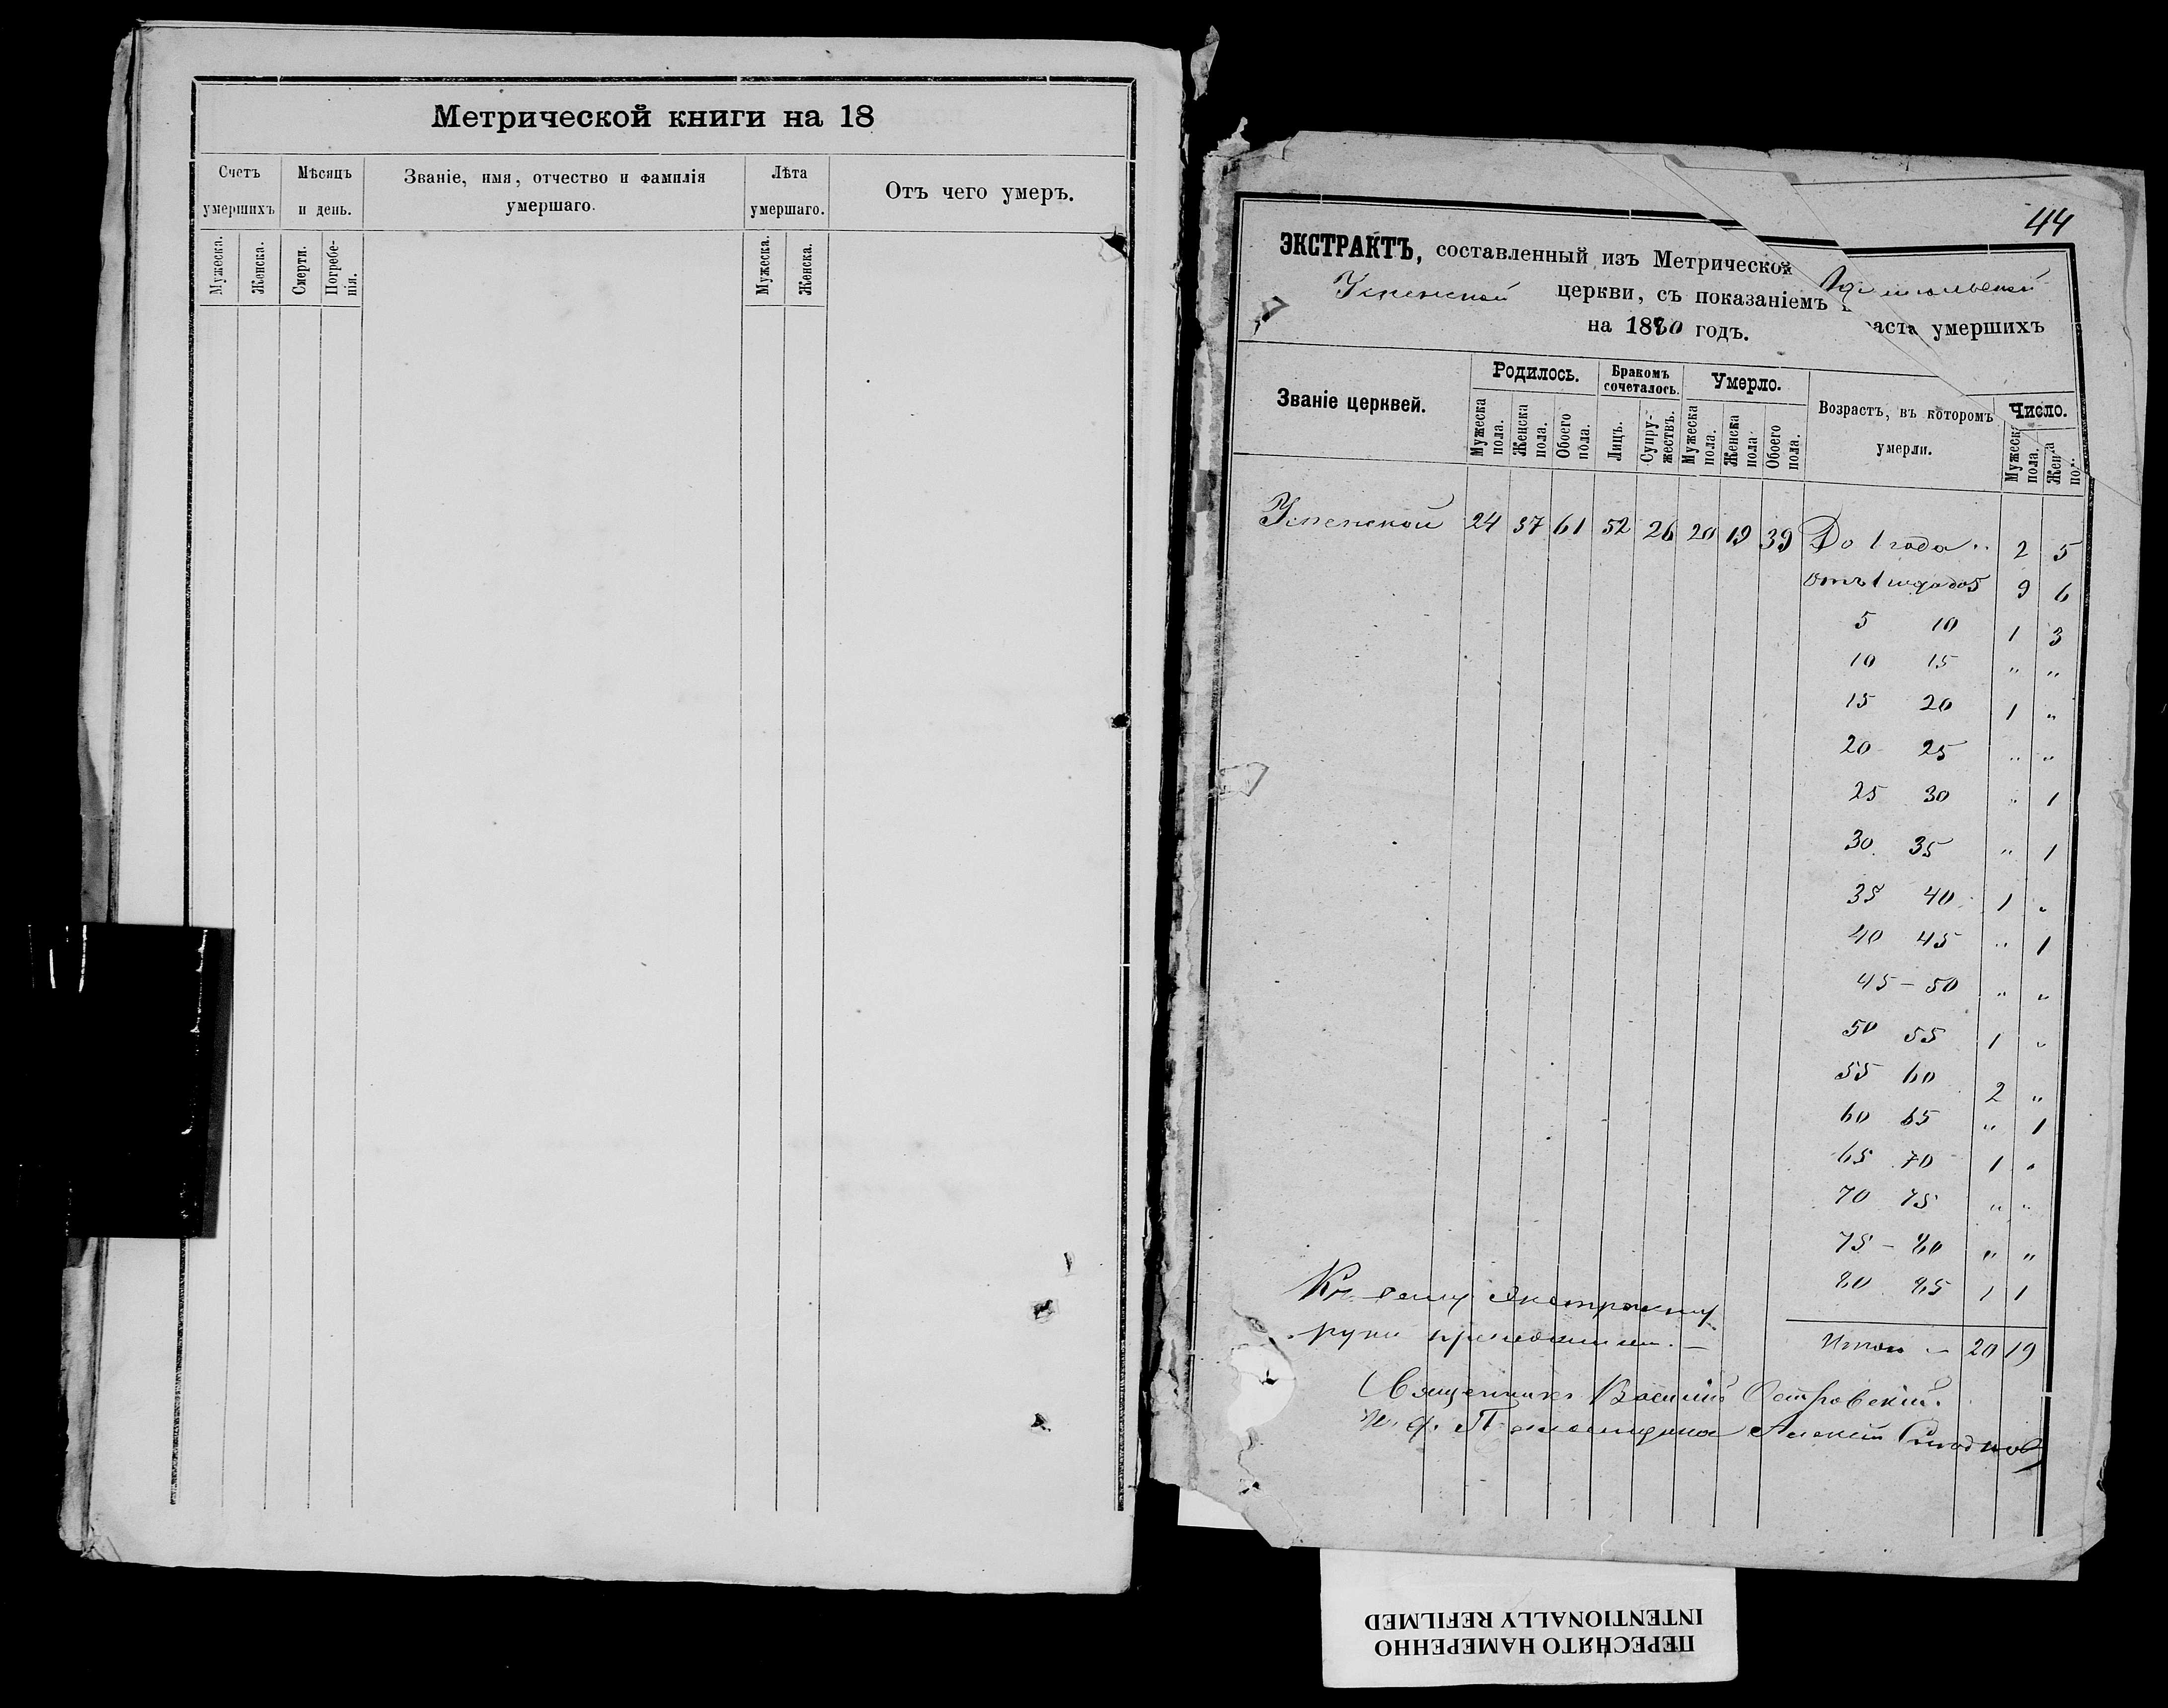 Метрической книги на 18
Счетъ умершихъ
Мѣсяцъ и день.
Званіе, имя, отчество и фамилія умершаго.
Лѣта умершаго.
Отъ чего умеръ.
Мужеска.
Женска.
Смерти.
Погребе-
нія.
Мужеска.
Женска.
44
ЭКСТРАКТЪ, составленный изъ Метрической
Успенской церкви, съ показаніемъ раста умершихъ
на 1880 годъ.
Званіе церквей.
Родилось.
Бракомъ сочеталось.
Умерло.
Возрастъ, въ котором умерли.
Число.
Мужеска пола.
Женска пола.
Обоего пола.
Лицъ.
Супру-
жествъ.
Мужеска пола.
Женска пола
Обоего пола.
Мужеск пола.
Успенской 24 37 61 52 26 20 19 39 До 1 года „ 2 5
Отъ 1 года до 5 9 6
5 10 1 3
10 15 „ „
15 20 1 „
20 25 „ „
25 30 „ 1
30 35 „ 1
35 40 1 „
40 45 „ 1
45 – 50 „ „
50 55 1 „
55 60 2 „
60 65 „ 1
65 70 1 „
70 75 „ „
75 – 80 „ „
80 85 1 1
Итого – 20 19
Къ сему экстракту
руки приложили. –
Священникъ Василій Островскій.
И. д. Псаломщика Алексѣй
ПЕРЕСНЯТО НАМЕРЕННО
INTENTIONALLY REFILMED